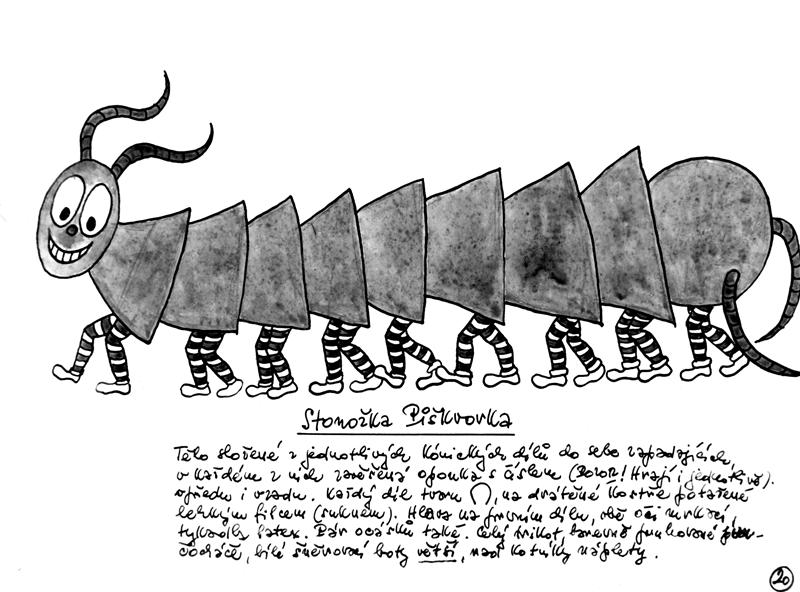 Stonožka Piškvorka
Tělo složené z jednotlivých kónických dílů do sebe zapadajících,
v každém z nich zavěšená oponka s číslem (Pozor! Hrají i jednotlivě).
vpředu i vzadu. Každý díl tvaru ∩, na drátěné kostře potažené
lehkým filcem (suknem). Hlava na prvním dílu, obě oči mrkací,
tykadla látex. Pár ocásků také. Celý trikot, barevně pruhované
, bílé šněrovací boty větší, nad kotníky náplety.
20